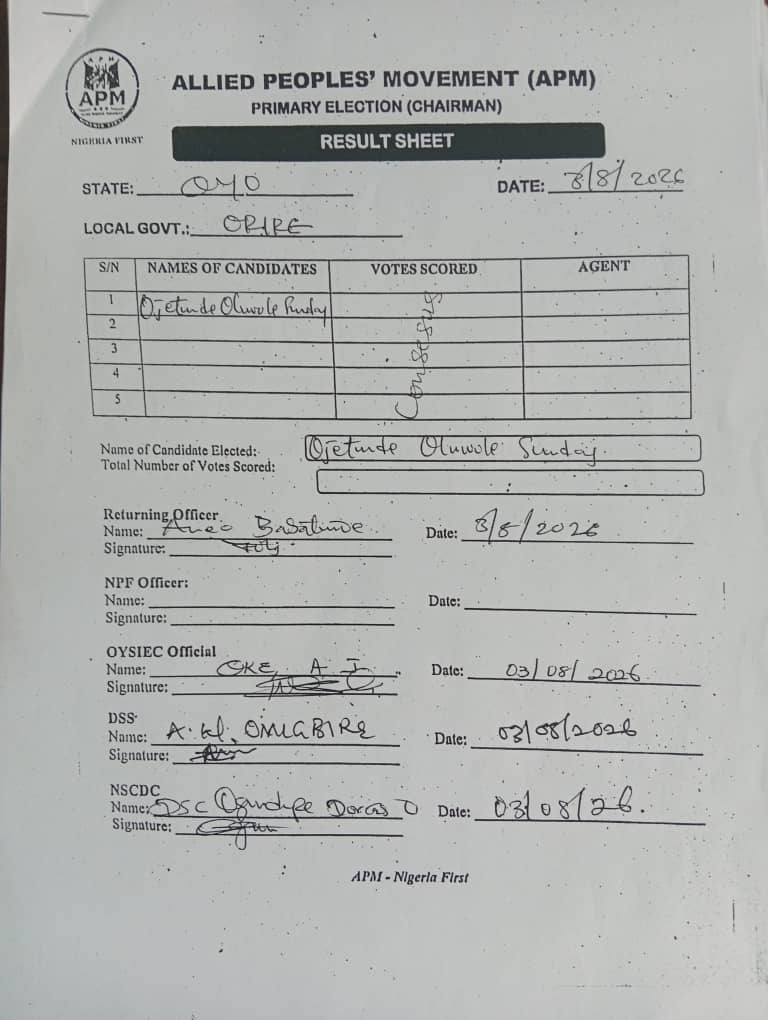 APM
NIGERIA FIRST
ALLIED PEOPLES' MOVEMENT (APM)
PRIMARY ELECTION (CHAIRMAN)
RESULT SHEET
STATE: OYO DATE: 3/8/2026
LOCAL GOVT.: ORIRE
S/N NAMES OF CANDIDATES VOTES SCORED AGENT
1 Ojetunde Oluwole Sunday
2
3
4
5
Consesus
Name of Candidate Elected: Ojetunde Oluwole Sunday
Total Number of Votes Scored:
Returning Officer
Name: Date: 3/8/2026
Signature:
NPF Officer:
Name: Date:
Signature:
OYSIEC Official
Name: OKE A. I. Date: 03/08/2026
Signature:
DSS
Name: A. Date: 03/08/2026
Signature:
NSCDC
Name: DSC Ogundipe Dorcas O Date: 03/08/26.
Signature:
APM - Nigeria First